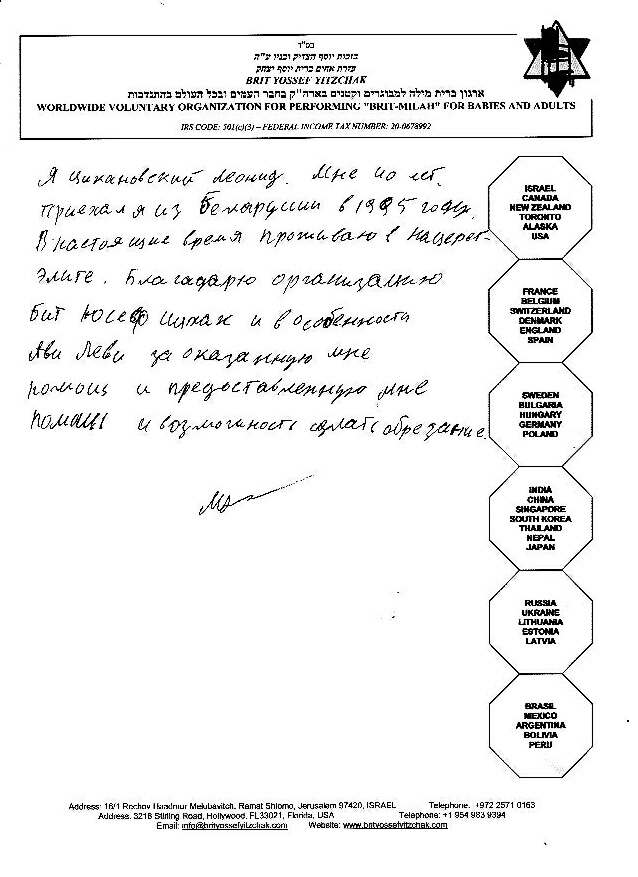 בס"ד
בזכות יוסף הצדיק ובניו ע"ה
עזרת אחים ברית יוסף יצחק
BRIT YOSSEF YITZCHAK
ארגון ברית מילה למבוגרים וקטנים בארה"ק בחבר העמים ובכל העולם בהתנדבות
WORLDWIDE VOLUNTARY ORGANIZATION FOR PERFORMING "BRIT-MILAH" FOR BABIES AND ADULTS
IRS CODE: 501(c)(3) – FEDERAL INCOME TAX NUMBER: 20-0678992
Я Цихановский Леонид. Мне лет.
Приехал я из Беларуссии в 1995 году.
В настоящие время проживаю в Нацерет-
Элите. Благадарю организацию
Бит Юсеф Ицхак и в особенности
Ави Леви за оказанную мне
помощ и предоставленную мне
и возможность сделать обрезание.
ISRAEL
CANADA
NEW ZEALAND
TORONTO
ALASKA
USA
FRANCE
BELGIUM
SWITZERLAND
DENMARK
ENGLAND
SPAIN
SWEDEN
BULGARIA
HUNGARY
GERMANY
POLAND
INDIA
CHINA
SINGAPORE
SOUTH KOREA
THAILAND
NEPAL
JAPAN
RUSSIA
UKRAINE
LITHUANIA
ESTONIA
LATVIA
BRASIL
MEXICO
ARGENTINA
BOLIVIA
PERU
Address: 16/1 Rechov Haadmur Melubavitch, Ramat Shlomo, Jerusalem 97420, ISRAEL Telephone: +972 2571 0163
Address: 3216 Stirling Road, Hollywood, FL33021, Florida, USA Telephone: +1 954 983 9394
Email: info@brityossefyitzchak.com Website: www.brityossefyitzchak.com